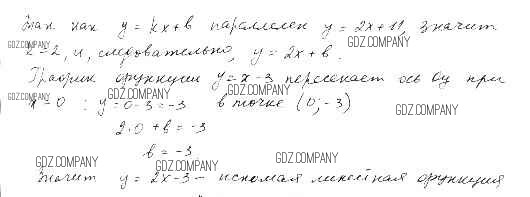 Так как y = kx + b параллелен y = 2x + 11, значит
GDZ.COMPANY
GDZ.COMPANY
k = 2, и, следовательно, y = 2x + b.
График функции y = x - 3 пересекает ось Oy при
GDZ.COMPANY
GDZ.COMPANY
GDZ.COMPANY
x = 0 : y = 0 - 3 = -3 в точке (0; -3)
GDZ.COMPANY
2·0 + b = -3
b = -3
GDZ.COMPANY
GDZ.COMPANY
GDZ.COMPANY
Значит y = 2x - 3 - искомая линейная функция